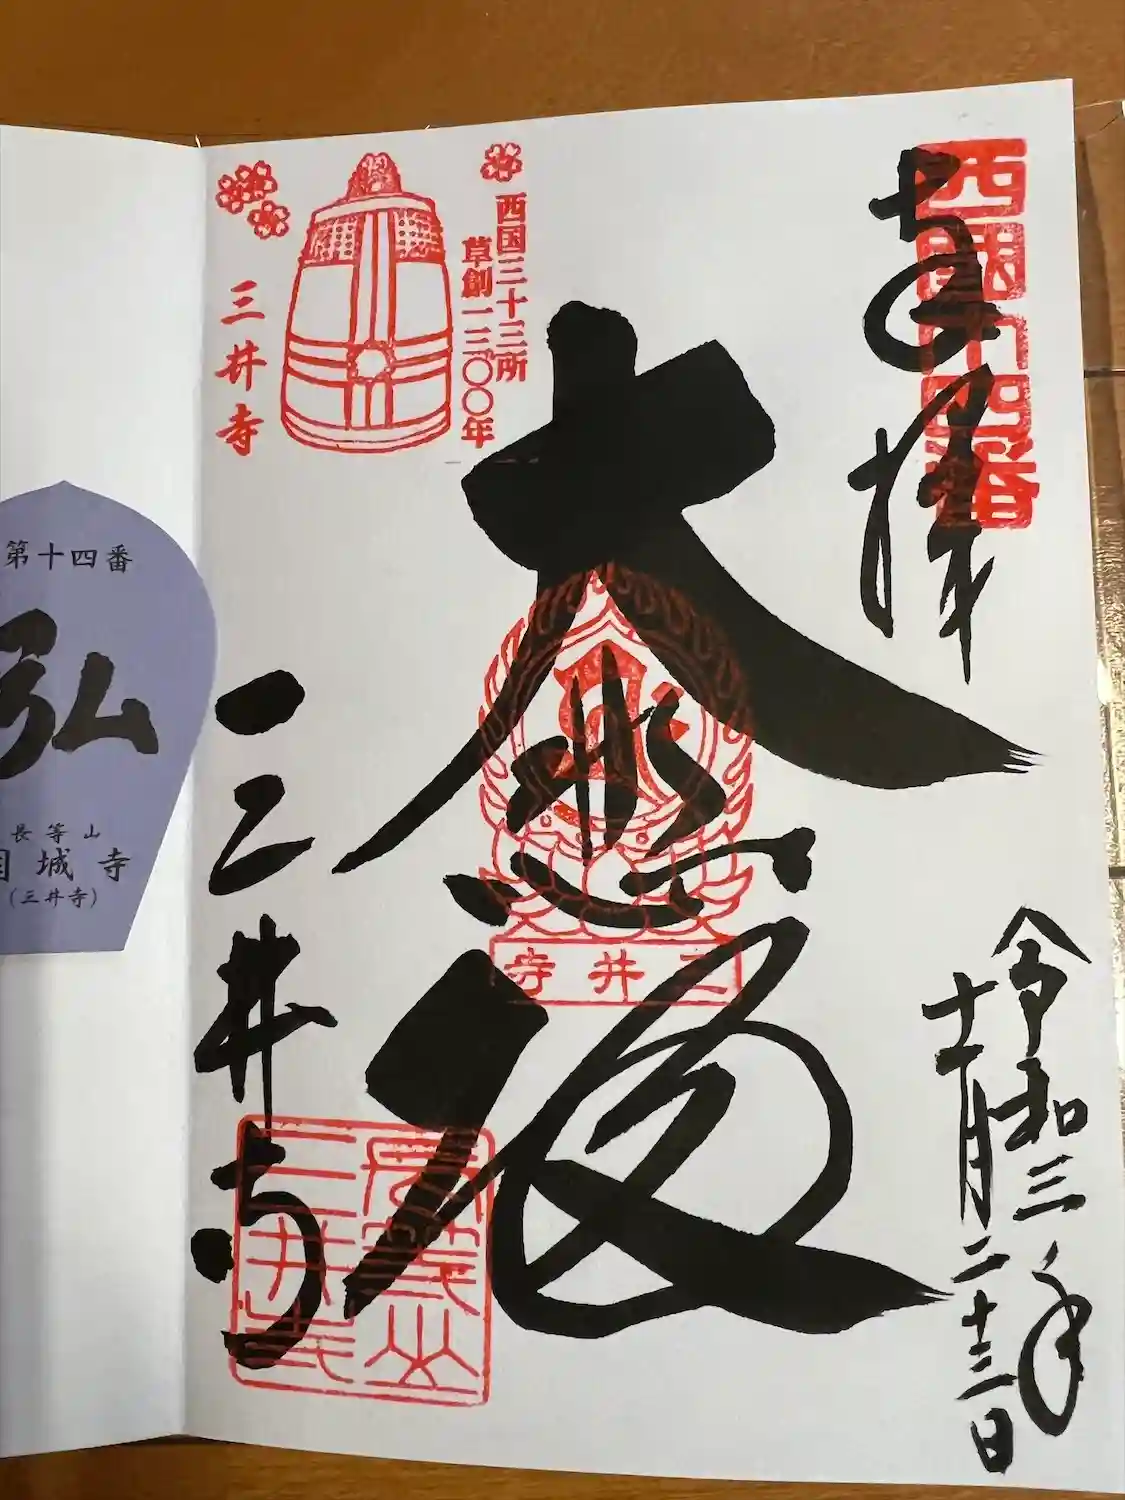 西國十四番
奉拝
令和三年
十一月二十三日
大悲殿
三井寺
西国三十三所
草創一三〇〇年
三井寺
三井寺
長等山
三井寺
第十四番
弘
長等山
園城寺
(三井寺)